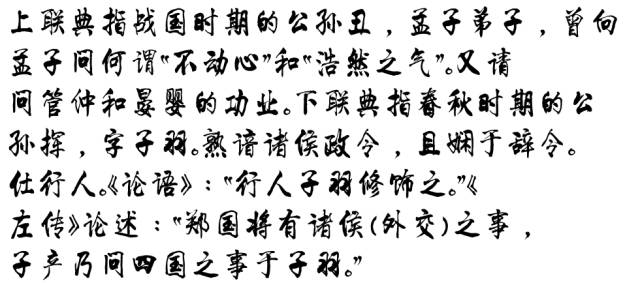 上联典指战国时期的公孙丑，孟子弟子，曾向
孟子问何谓“不动心”和“浩然之气”。又请
问管仲和晏婴的功业。下联典指春秋时期的公
孙挥，字子羽。熟谙诸侯政令，且娴于辞令。
仕行人。《论语》：“行人子羽修饰之。”《
左传》论述：“郑国将有诸侯(外交)之事，
子产乃问四国之事于子羽。”